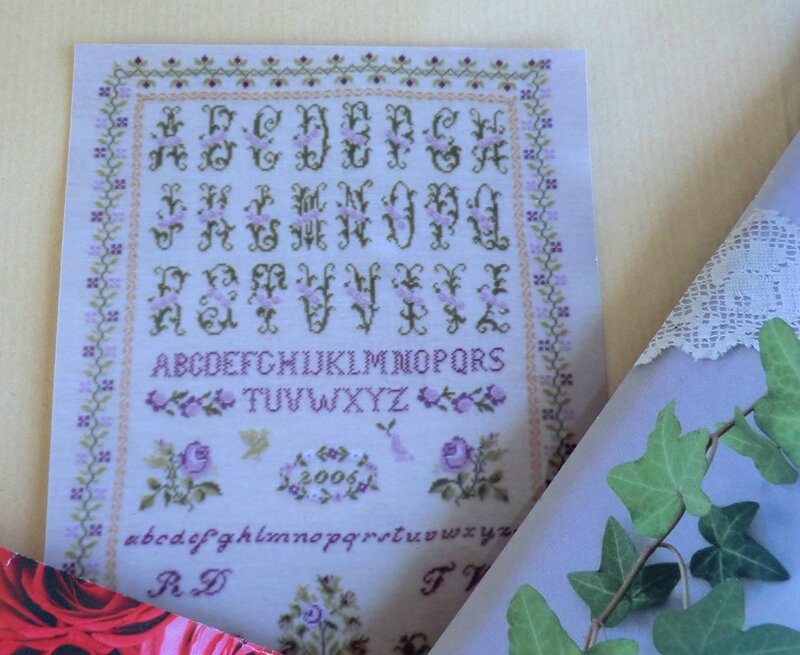 A B C D E F G H
J K L M N O P Q
R S T U V X Y Z
ABCDEFGHIJKLMNOPQRS
TUVWXYZ
2005
abcdefghlmnopqrstuvwxyz
R D F